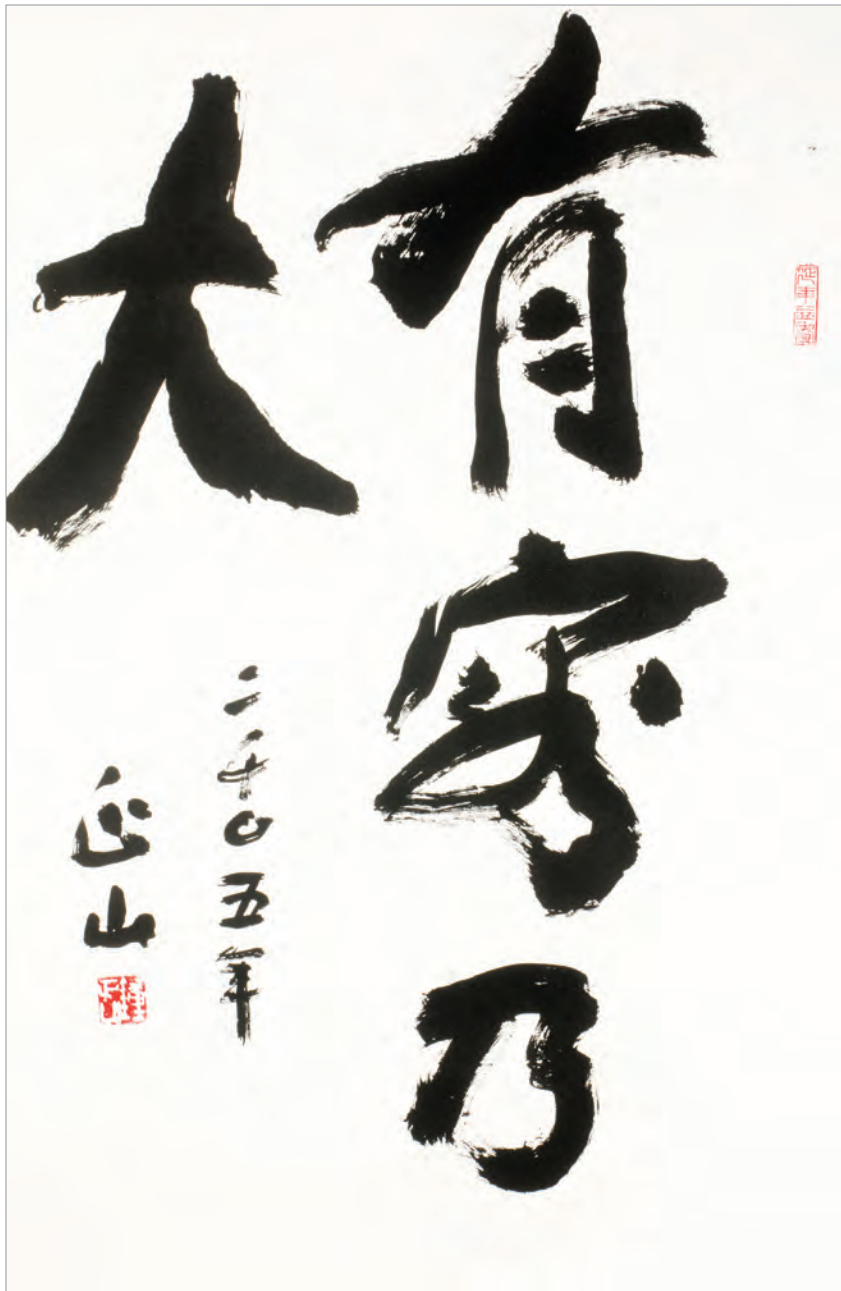 有容乃
大
二千〇五年
山